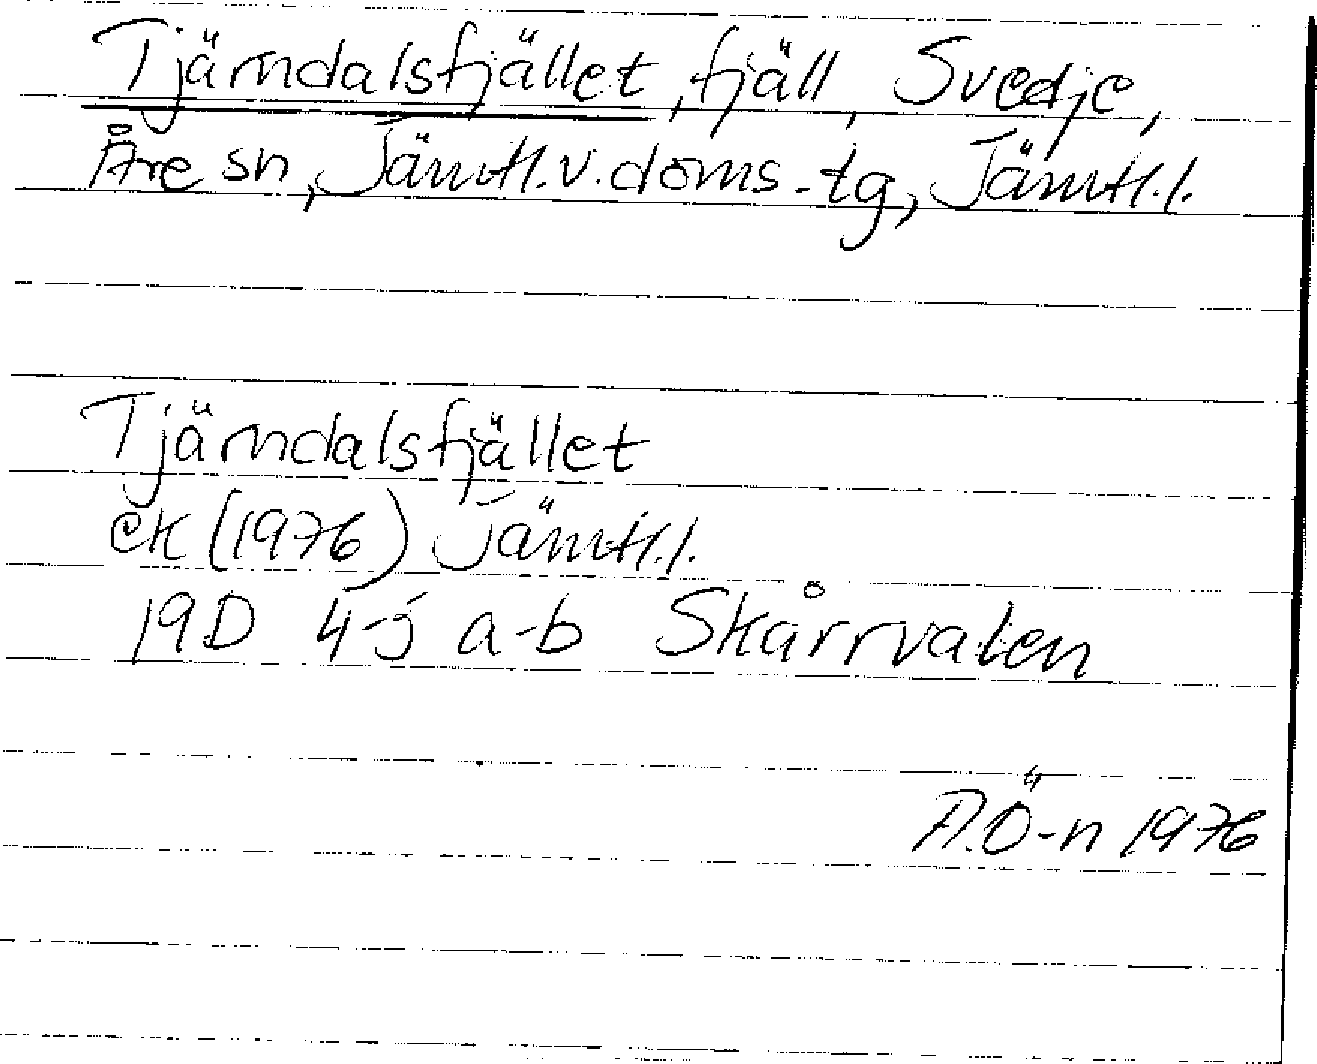 Tjärndalsfjället, fjäll, Svedje,
Åre sn, Jämtl.v.doms.tg, Jämtl.l.
Tjärndalsfjället
ek (1976) Jämtl.l.
19D 4-j a-b Skårrvalen
A.Ö-n 1976